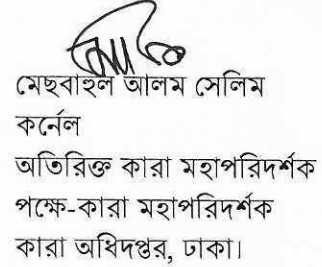 মেছবাহুল আলম সেলিম
কর্নেল
অতিরিক্ত কারা মহাপরিদর্শক
পক্ষে-কারা মহাপরিদর্শক
কারা অধিদপ্তর, ঢাকা।